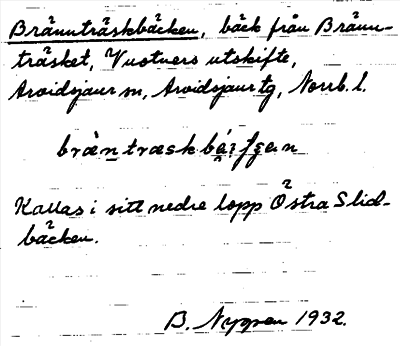 Brännträskbäcken, bäck från Bränn-
träsket, Vuotners utskifte,
Arvidsjaur sn, Arvidsjaur tg, Norrb. l.
Kallas i sitt nedre lopp Östra Slid-
bäcken.
B. Nyppen 1932.